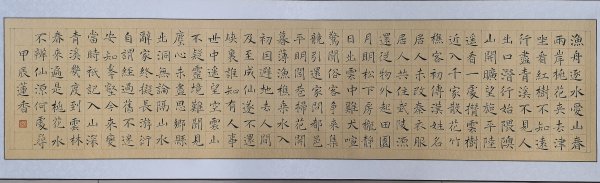 漁舟逐水愛山春
兩岸桃花夾去津
坐看紅樹不知遠
行盡青溪不見人
山口潛行始隈隩
山開曠望旋平陸
遙看一處攢雲樹
近入千家散花竹
樵客初傳漢姓名
居人未改秦衣服
居人共住武陵源
還從物外起田園
月明松下房櫳靜
日出雲中雞犬喧
驚聞俗客爭來集
競引還家問都邑
平明閭巷掃花開
薄暮漁樵乘水入
初因避地去人間
及至成仙遂不還
峽裏誰知有人事
世中遙望空雲山
不疑靈境難聞見
塵心未盡思鄉縣
出洞無論隔山水
辭家終擬長游衍
自謂經過舊不迷
安知峯壑今來變
當時祇記入山深
青溪幾度到雲林
春來遍是桃花水
不辨仙源何處尋
甲辰蓮香